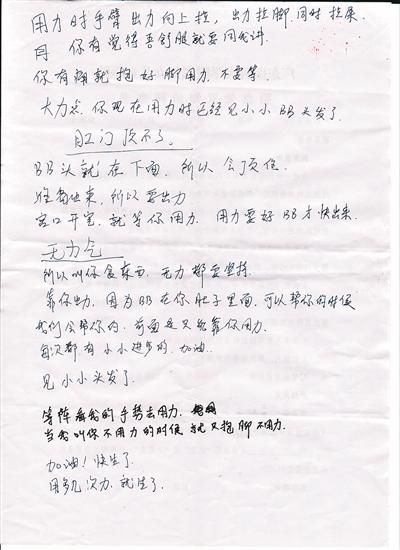 用力时手臂出力向上拉,出力拉脚,同时拉屎
你有觉得吾舒服就要同我讲.
你有痛就抱好脚用力.不要等.
大力点.你现在用力时已经见小小BB头发了.
肛门顶不了。
BB头就在下面.所以会顶住.
所以要出力
宫口开完,就等你用力.用力要好BB才快出来.
无力气
所以叫你食东西.无力都要坚持.
靠你出力.因为BB在你肚子里面.可以帮你的时候
我们会帮你的.前面是又能靠你用力.
每次都有小小进步的.加油..
见小小头发了.
等阵看我的手势去用力.
当我叫你不用力的时候就又抱脚不用力.
加油!快生了.
用多几次力.就生了.